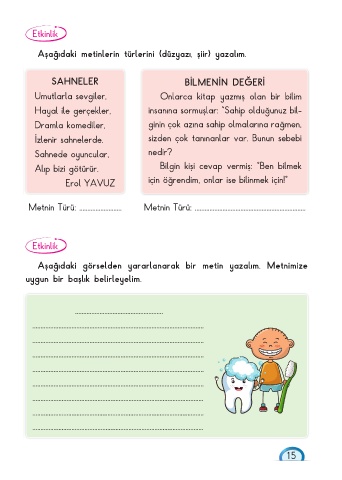 Etkinlik
Aşağıdaki metinlerin türlerini (düzyazı, şiir) yazalım.
SAHNELER
Umutlarla sevgiler,
Hayal ile gerçekler,
Dramla komediler,
İzlenir sahnelerde.
Sahnede oyuncular,
Alıp bizi götürür.
Erol YAVUZ
BİLMENİN DEĞERİ
Onlarca kitap yazmış olan bir bilim
insanına sormuşlar: "Sahip olduğunuz bil-
ginin çok azına sahip olmalarına rağmen,
sizden çok tanınanlar var. Bunun sebebi
nedir?
Bilgin kişi cevap vermiş: "Ben bilmek
için öğrendim, onlar ise bilinmek için!"
Metnin Türü: ........................
Metnin Türü: ................................................................
Etkinlik
Aşağıdaki görselden yararlanarak bir metin yazalım. Metnimize
uygun bir başlık belirleyelim.
15